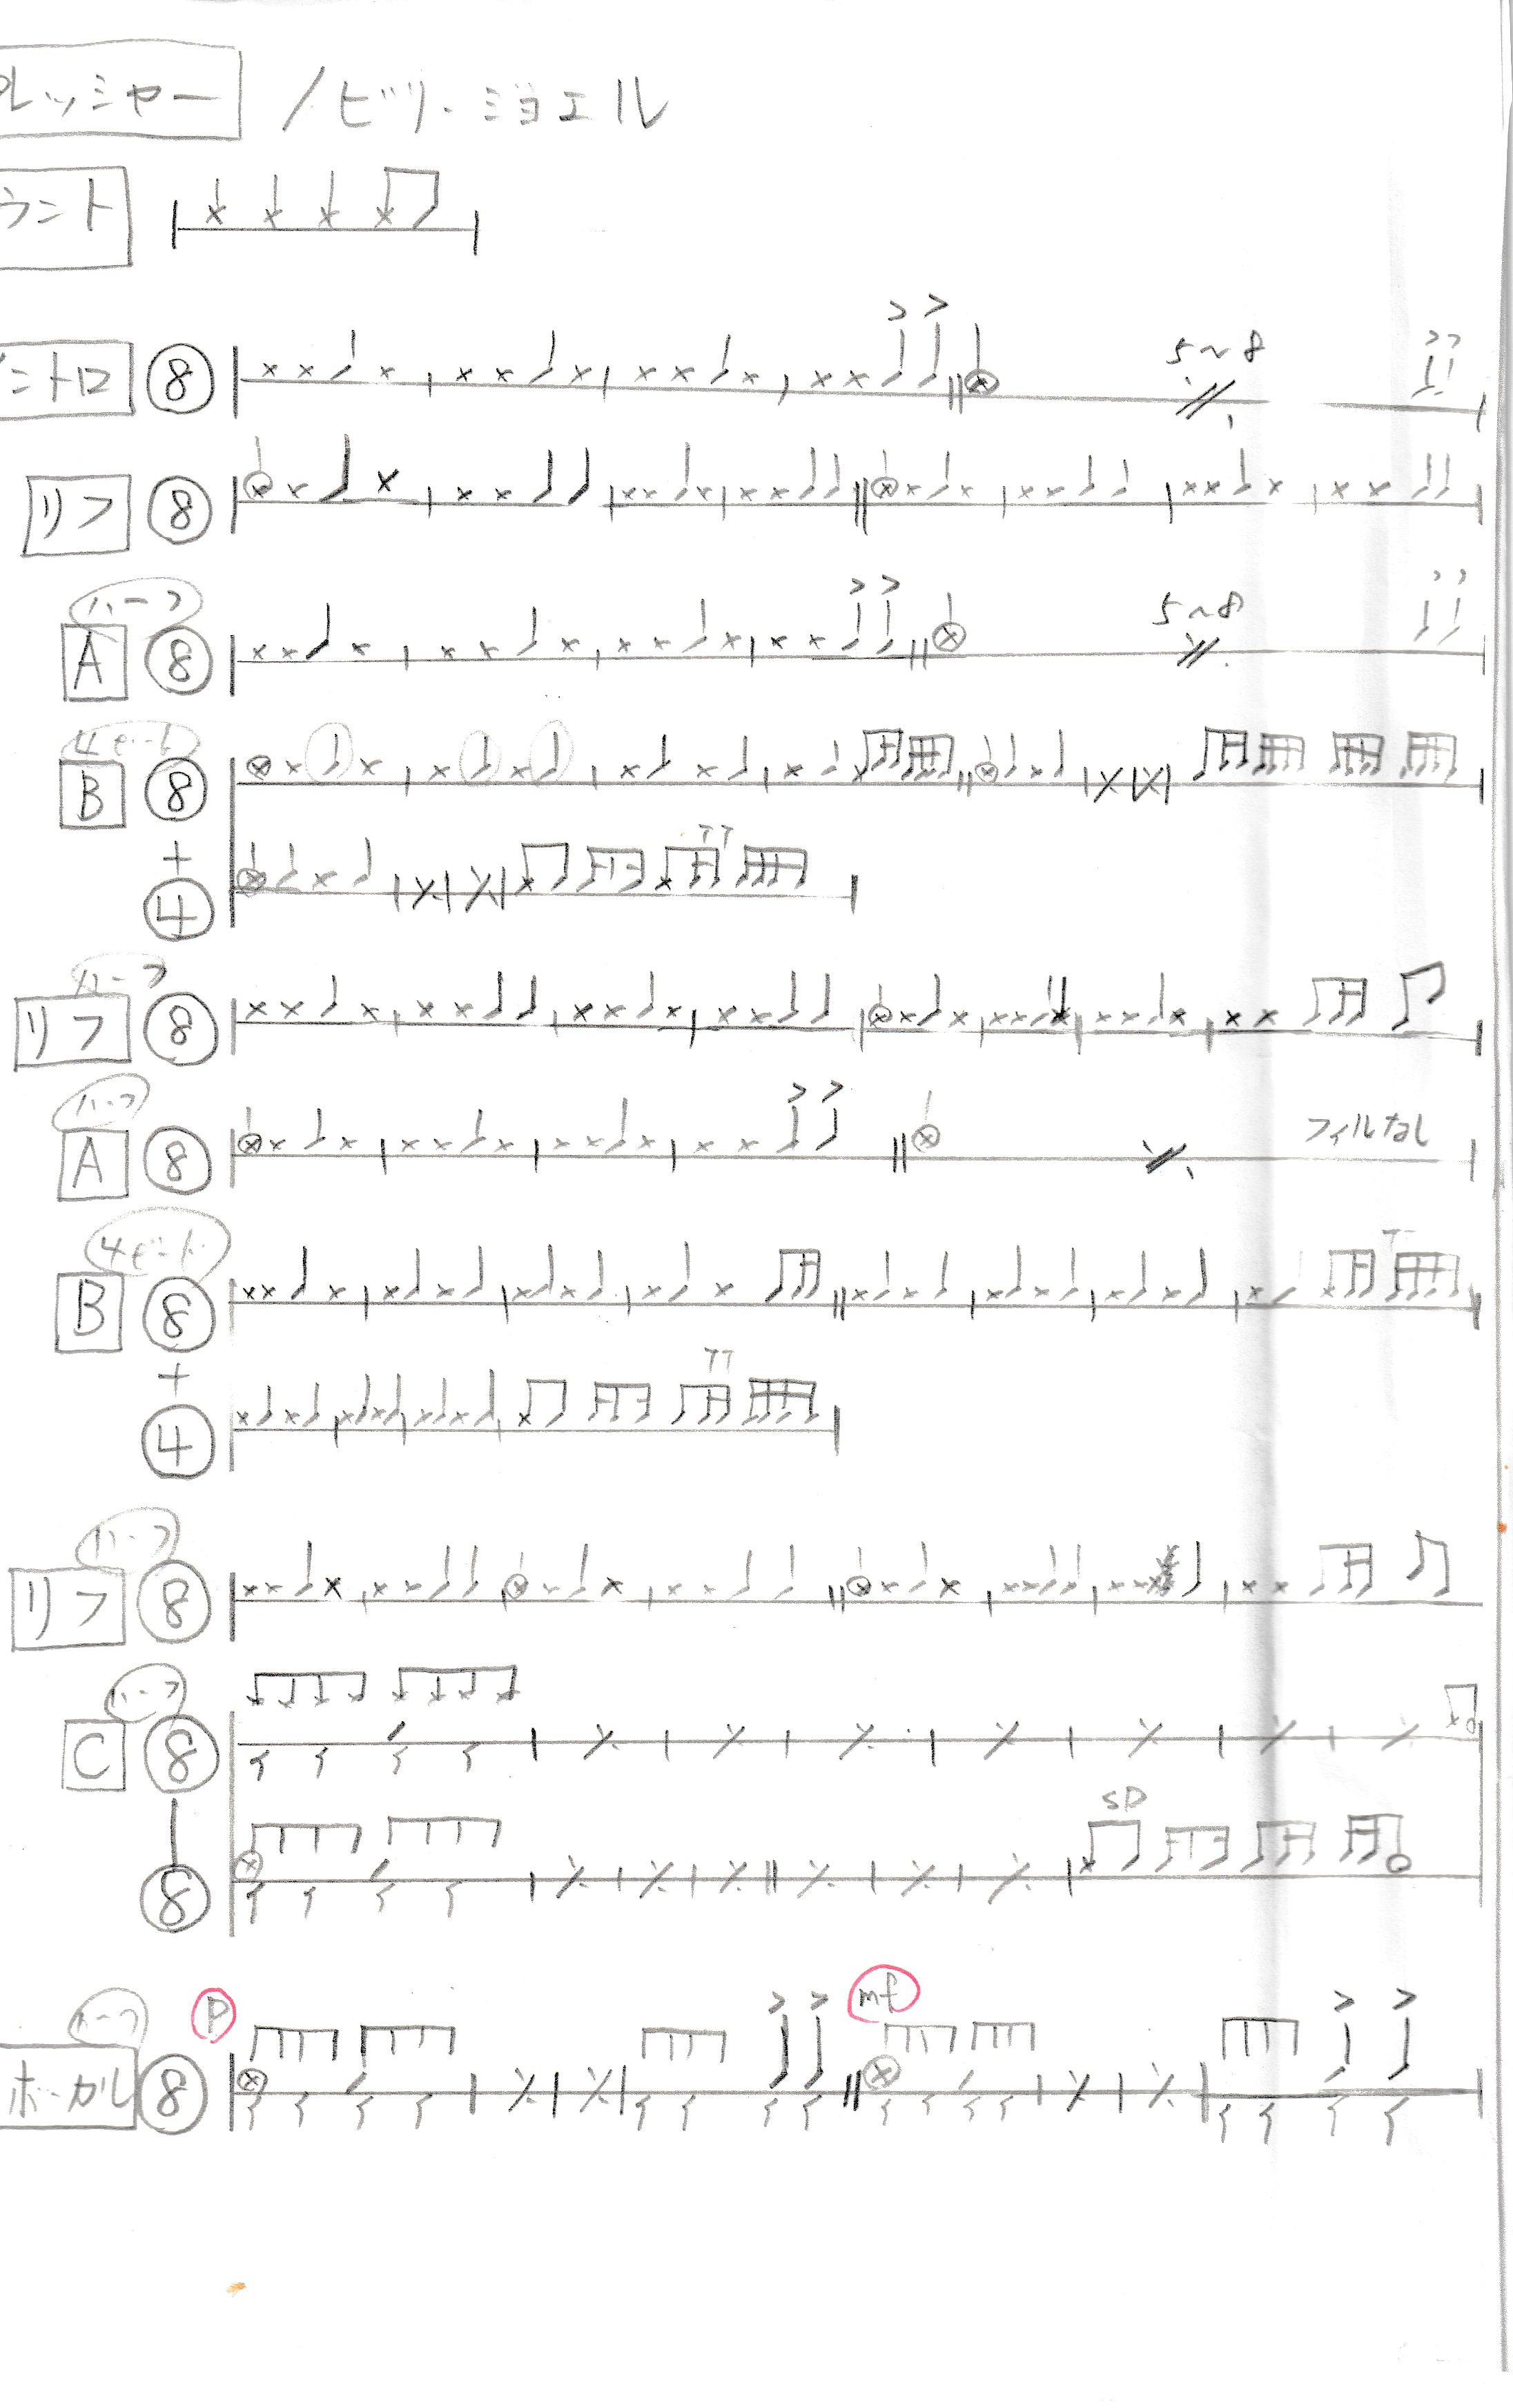 レッシャー / ビリー・ジョエル
ウント
ントロ ⑧ 5~8
リフ ⑧
ハーフ
A ⑧ 5~8
4ビート
B ⑧
+
④
ハーフ
リフ ⑧
ハーフ
A ⑧ フィルなし
4ビート
B ⑧
+
④
ハーフ
リフ ⑧
ハーフ
C ⑧
SD
⑧
ハーフ p mf
ボーカル ⑧